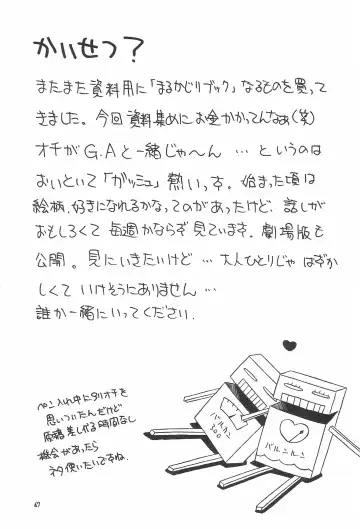 かいせつ？
またまた資料用に「まるかじりブック」なるものを買って
きました。今回資料集めにお金かかってんなぁ(笑)
オチがG.Aと一緒じゃ〜ん…というのは
おいといて「ガッシュ」熱いっす。始まった頃は
絵柄、好きになれるかなってのがあったけど、話しが
おもしろくて毎週かならず見ています。劇場版も
公開。見にいきたいけど…大人ひとりじゃはずか
しくていけそうにありません…
誰か一緒にいってください。
ペン入れ中に別オチを
思いついたんだけど
原稿差しかえる時間なし
機会があったら
ネタ使いたいですね。
バルカン
300
バルニルン
47